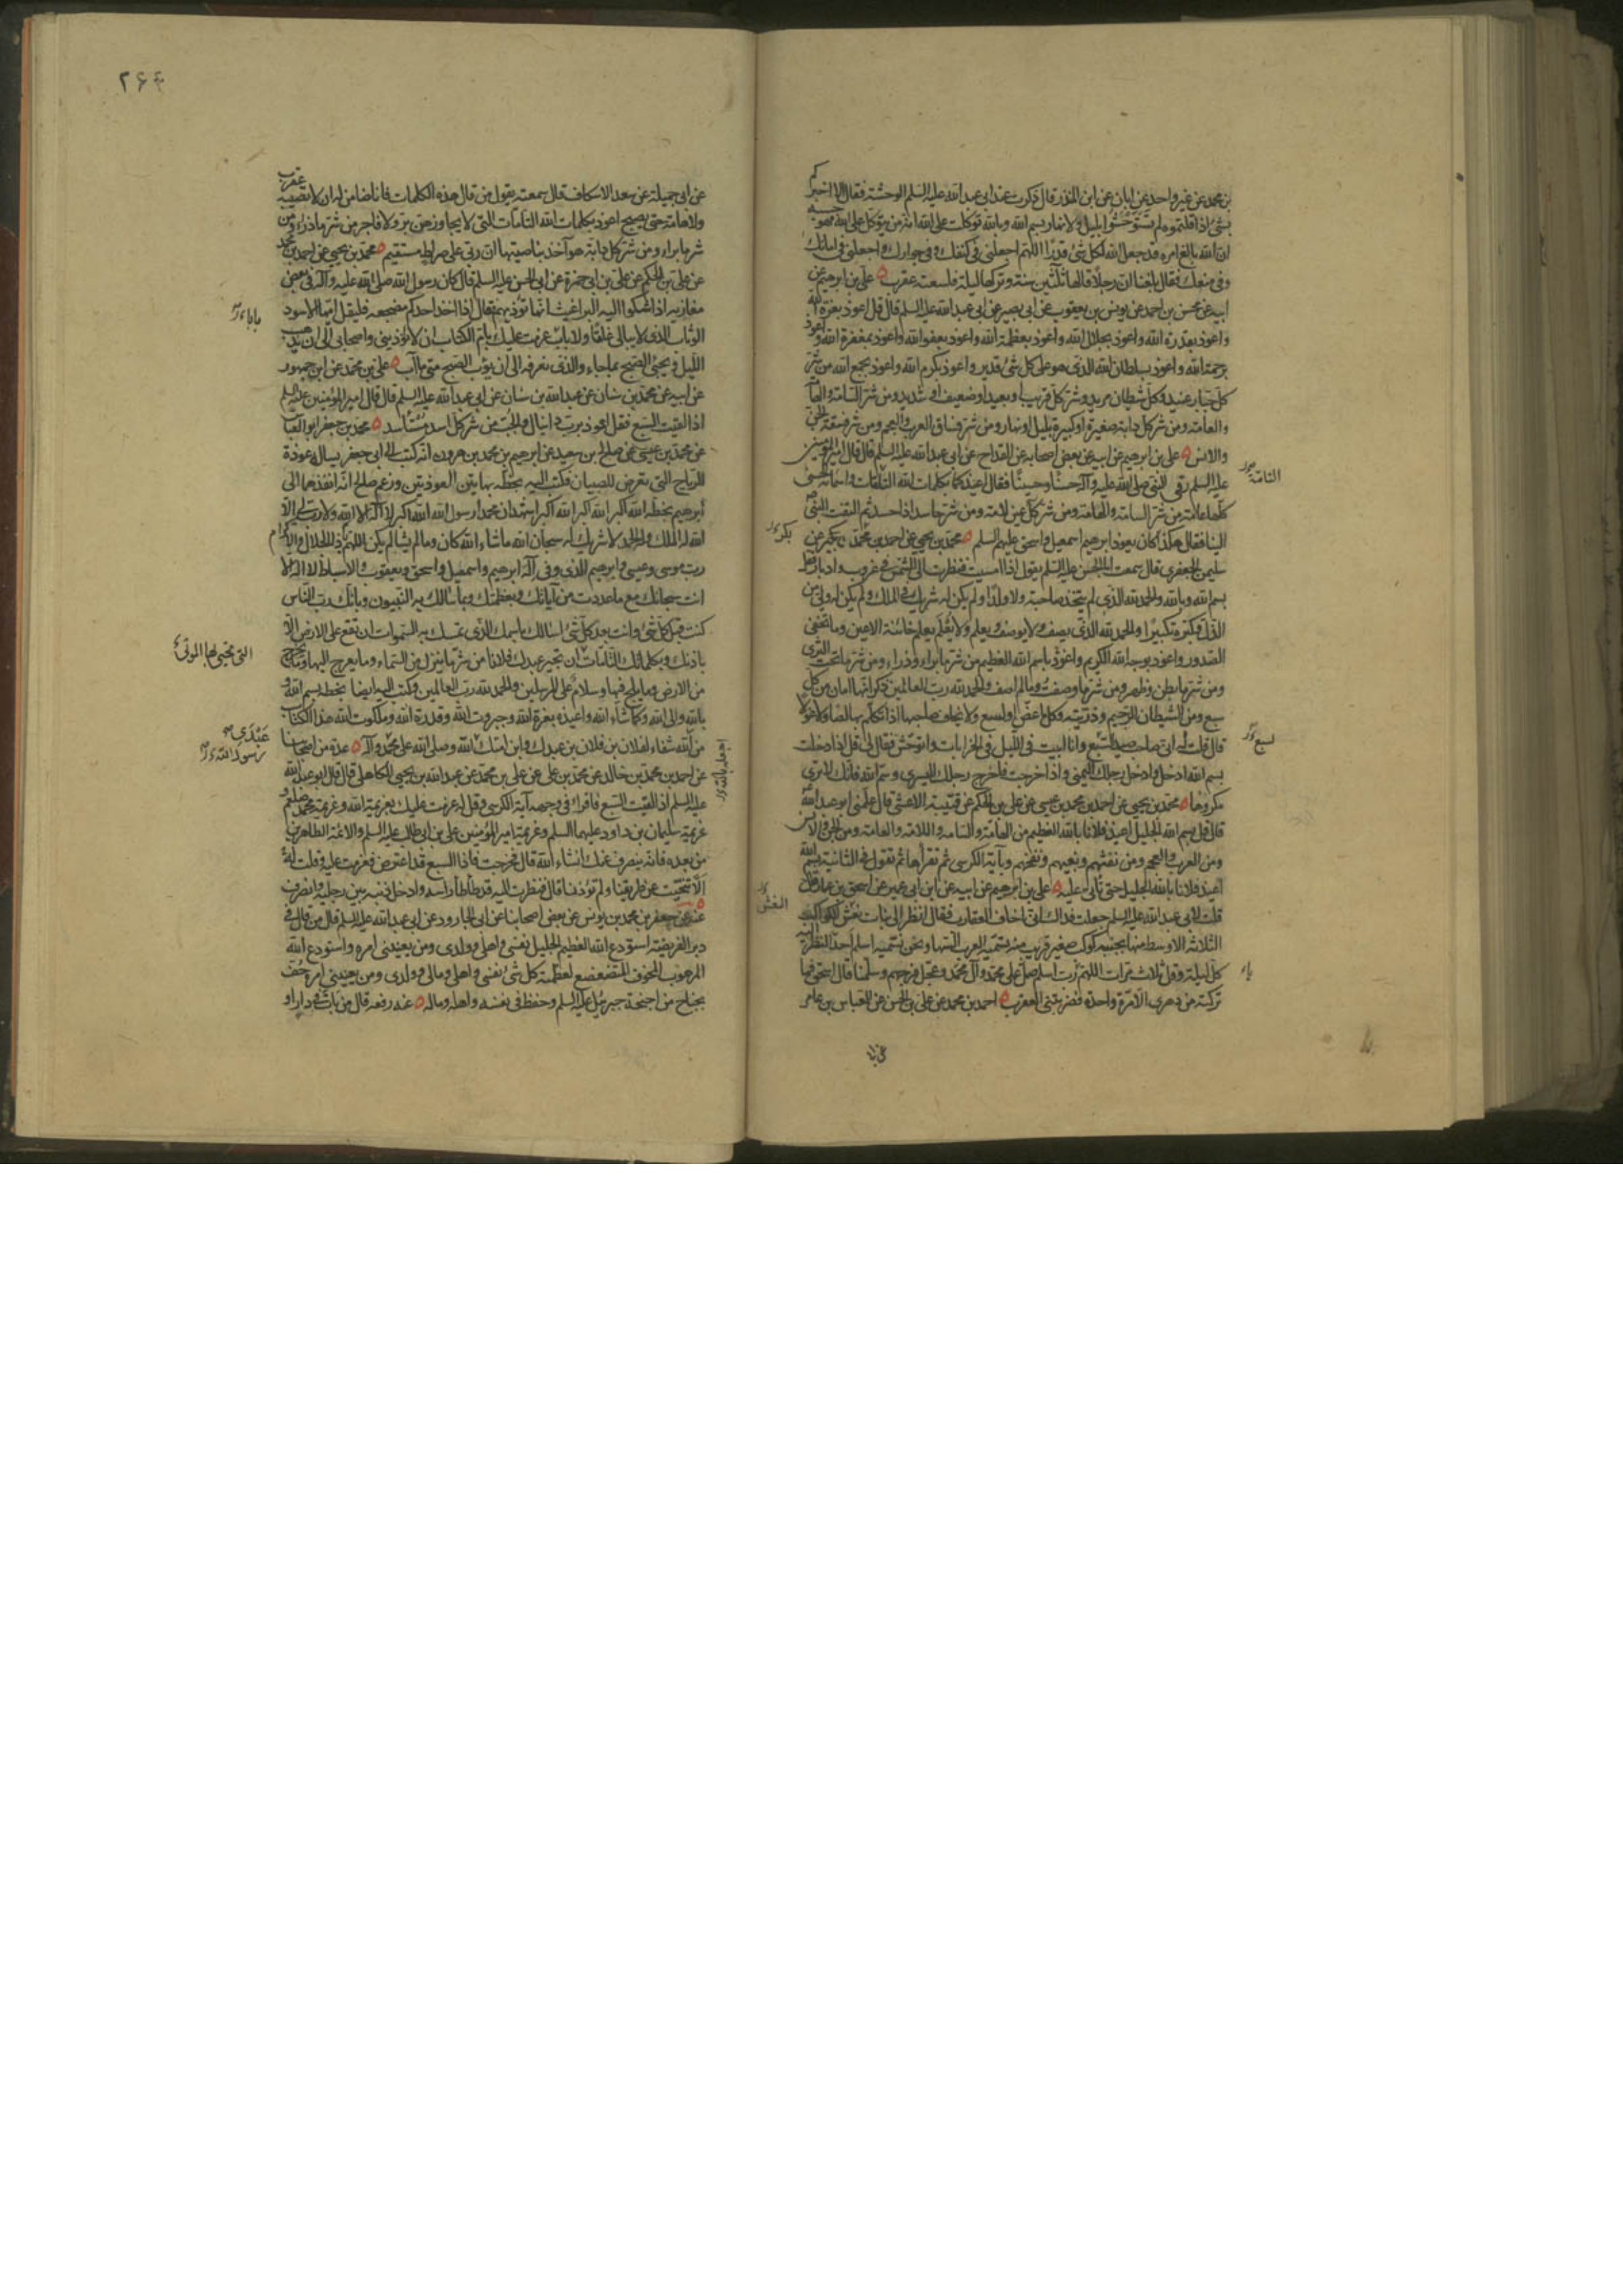 بن محمد عن غير واحد عن ابان عن ابن المنذر قال ذكرت عند ابى عبد الله عليه السلم الوحشة فقال الا اخبركم
بشئ اذا قلتموه لم تستوحشوا بليل ولا نهار بسم الله وبالله توكلت على الله انه من يتوكل على الله فهو حسبه
ان الله بالغ امره قد جعل الله لكل شئ قدرا اللهم اجعلنى فى كنفك وفى جوارك واجعلنى فى امانك
وفى منعك فقال بلغنا ان رجلا قالها ثلثين سنة وتركها ليلة فلسعته عقرب علىّ بن ابرهيم عن
ابيه عن محسن بن احمد عن يونس بن يعقوب عن ابى بصير عن ابى عبد الله عليه السلم قال قل اعوذ بعزة الله
واعوذ بقدرة الله واعوذ بجلال الله واعوذ بعظمة الله واعوذ بعفو الله واعوذ بمغفرة الله واعوذ
برحمة الله واعوذ بسلطان الله الذى هو على كل شئ قدير واعوذ بكرم الله واعوذ بجمع الله من شر
كل جبار عنيد وكل شيطان مريد وشر كل قريب او بعيد او ضعيف او شديد ومن شر السامة والهامة
والعامة ومن شر كل دابة صغيرة او كبيرة بليل او نهار ومن شر فساق العرب والعجم ومن شر فسقة الجن
والانس على بن ابرهيم عن ابيه عن بعض اصحابه عن القداح عن ابى عبد الله عليه السلم قال قال امير المؤمنين
عليه السلم رقى النبى صلى الله عليه وآله حسنا وحسينا فقال اعيذكما بكلمات الله التامات واسمائه الحسنى
التامة
كلها عامة من شر السامة والهامة ومن شر كل عين لامة ومن شر حاسد اذا حسد ثم التفت النبى
الينا فقال هكذا كان يعوذ ابرهيم اسمعيل واسحق عليهم السلم محمد بن يحيى عن احمد بن محمد بكير عن
بكر
سليمن الجعفرى قال سمعت ابا الحسن عليه السلم يقول اذا امسيت فنظرت الى الشمس فى غروب وادبار فقل
بسم الله وبالله والحمد لله الذى لم يتخذ صاحبة ولا ولدا ولم يكن له شريك فى الملك ولم يكن له ولى من
الذل وكبره تكبيرا والحمد لله الذى يصف ولا يوصف ويعلم ولا يعلم يعلم خائنة الاعين وما تخفى
الصدور واعوذ بوجه الله الكريم واعوذ باسم الله العظيم من شر ما براء وذراء ومن شر ما تحت الثرى
ومن شر ما بطن وظهر ومن شر ما وصفت وما لم اصف والحمد لله رب العالمين ذكر انها امان من كل
سبع ومن الشيطان الرجيم وذريته وكل ما عض او لسع ولا يخاف صاحبها اذا تكلم بها لصا ولا غولا
قال قلت له انى صاحب صيد السبع وانا ابيت فى الليل فى الخرابات واتوحش فقال لى قل اذا دخلت
لسبع
بسم الله ادخل وادخل رجلك اليمنى واذا خرجت فاخرج رجلك اليسرى وسم الله فانك لا ترى
مكروها محمد بن يحيى عن احمد بن محمد بن عيسى عن على بن الحكم عن قتيبة الاعشى قال علمنى ابو عبد الله
قال قل بسم الله الجليل اعيذ فلانا بالله العظيم من الهامة والسامة واللامة والعامة ومن الجن والانس
ومن العرب والعجم ومن نفثهم وبغيهم ونفخهم وبآية الكرسى ثم تقرأها ثم تقول فى الثانية بسم الله
اعيذ فلانا بالله الجليل حتى تاتى عليه على بن ابرهيم عن ابيه عن ابن ابى عمير عن اسحق بن عمار قال
قلت لابى عبد الله عليه السلم جعلت فداك انى اخاف العقارب فقال انظر الى بنات نعش الكواكب
النعش
الثلاثة الاوسط منها بجنبه كوكب صغير قريب منه تسميه العرب السها ونحن نسميه اسلم احد النظر اليه
كل ليلة وقل ثلاث مرات اللهم رب اسلم صل على محمد وآل محمد وعجل فرجهم وسلمنا قال اسحق فما
تركته من دهرى الا مرة واحدة فضربتنى العقرب احمد بن محمد عن على بن الحسن عن العباس بن عامر
۲۶۴
عن ابى جميلة عن سعد الاسكاف قال سمعته يقول من قال هذه الكلمات فانا ضامن له ان لا تصيبه عقرب
ولا هامة حتى يصبح اعوذ بكلمات الله التامات التى لا يجاوزهن بر ولا فاجر من شر ما ذراء ومن
شر ما براء ومن شر كل دابة هو آخذ بناصيتها ان ربى على صراط مستقيم محمد بن يحيى عن احمد بن محمد
عن على بن الحكم عن على بن ابى حمزة عن ابى الحسن عليه السلم قال كان رسول الله صلى الله عليه وآله فى بعض
مغازيه اذا شكوا اليه البراغيث انها تؤذيهم فقال اذا اخذ احدكم مضجعه فليقل ايها الاسود
الوثاب الذى لا يبالى غلقا ولا بابا عزمت عليك بام الكتاب ان لا تؤذينى واصحابى الى ان يذهب
الليل ويجئ الصبح بما جاء والذى نعرفه الى ان يؤب الصبح متى ما آب على بن محمد عن ابن جمهور
عن ابيه عن محمد بن سنان عن عبد الله بن سنان عن ابى عبد الله عليه السلم قال قال امير المؤمنين عليه السلم
اذا لقيت السبع فقل اعوذ برب دانيال والجب من شر كل اسد مستأسد محمد بن جعفر ابو العباس
عن محمد بن عيسى عن صالح بن سعيد عن ابرهيم بن محمد بن هرون انه كتب الى ابى جعفر يساله عوذة
للرياح التى تعرض للصبيان فكتب اليه بخطه بهاتين العوذتين وزعم صالح انه انفذهما الى
ابرهيم بخطه الله اكبر الله اكبر الله اكبر اشهد ان محمدا رسول الله الله اكبر لا اله الا الله ولا رب لى الا
الله له الملك وله الحمد لا شريك له سبحان الله ما شاء الله كان وما لم يشا لم يكن اللهم ذا الجلال والاكرام
رب موسى وعيسى وابرهيم الذى وفى آله ابرهيم واسمعيل واسحق ويعقوب والاسباط لا اله الا
انت سبحانك مع ما عددت من آياتك وبعظمتك وبما سالك به النبيون وبانك رب الناس
كنت قبل كل شئ وانت بعد كل شئ اسالك باسمك الذى تمسك به السموات ان تقع على الارض الا
باذنك وبكلماتك التامات ان تجير عبدك فلانا من شر ما ينزل من السماء وما يعرج اليها وما يخرج
التى تحيى بها الموتى
من الارض وما يلج فيها وسلام على المرسلين والحمد لله رب العالمين وكتب اليه ايضا بخطه بسم الله و
بالله والى الله وكما شاء الله واعيذه بعزة الله وجبروت الله وقدرة الله وملكوت الله هذا الكتاب
من الله شفاء لفلان بن فلان بن عبدك وابن امتك الله وصلى الله على محمد وآله عدة من اصحابنا
عبدى
رسول الله
عن احمد بن محمد بن خالد عن محمد بن على عن على بن محمد عن عبد الله بن يحيى الكاهلى قال قال ابو عبد الله
عليه السلم اذا لقيت السبع فاقراء فى وجهه آية الكرسى وقل له عزمت عليك بعزيمة الله وعزيمة محمد صلعم و
عزيمة سليمان بن داود عليهما السلم وعزيمة امير المؤمنين على بن ابى طالب عليه السلم والائمة الطاهرين
من بعده فانه ينصرف عنك انشاء الله قال فخرجت فاذا السبع قد اعترض فعزمت عليه وقلت له
الا تنحيت عن طريقنا ولم تؤذنا قال فنظرت اليه قد طأطأ راسه وادخل ذنبه بين رجليه وانصرف
عنه عن جعفر بن محمد بن يونس عن بعض اصحابنا عن ابى الجارود عن ابى عبد الله عليه السلم قال من قال فى
دبر الفريضة استودع الله العظيم الجليل نفسى واهلى وولدى ومن يعنينى امره واستودع الله
المرهوب المخوف المتضعضع لعظمته كل شئ نفسى واهلى ومالى وولدى ومن يعنينى امره حف
بجناح من اجنحة جبرئيل عليه السلم وحفظ فى نفسه واهله وماله عنه رفعه قال من بات فى دار او